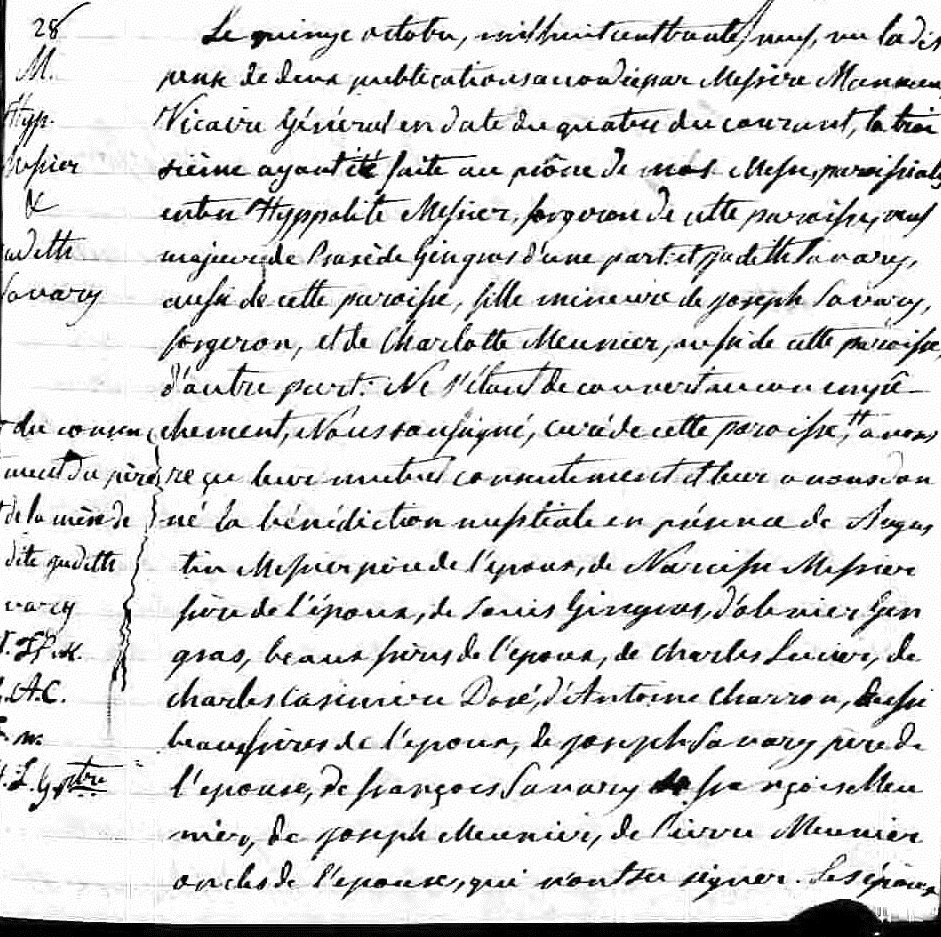 28
M.
Hyp.
Messier
&
udith
Savary
Le quinze octobre, mil huit cent trente neuf, vu la dis
pense de deux publications accordée par Messire Manseau
Vicaire Général en date du quatre du courant, la troi
sième ayant été faite au prône de nos Messes paroissiales
entre Hyppolite Messier, forgeron de cette paroisse, veuf
majeur de Praxède Gingras d'une part: et Judith Savary,
aussi de cette paroisse, fille mineure de Joseph Savary,
forgeron, et de Charlotte Meunier, aussi de cette paroisse
d'autre part: Ne s'étant découvert aucun empê-
chement, Nous soussigné, curé de cette paroisse, avons
reçu leur mutuel consentement et leur avons don
né la bénédiction nuptiale en présence de Augus
tin Messier père de l'époux, de Narcisse Messier
frère de l'époux, de Louis Gingras, d'olivier Gin
gras, beaux frères de l'époux, de Charles Lucier, de
Charles Casimire Doré, d'Antoine Charron, aussi
beaufrères de l'époux, de Joseph Savary père de
l'épouse, de françois Savary de françois Meu
nier, de Joseph Meunier, de Pierre Meunier
oncles de l'épouse, qui n'ont su signer. Les époux
du consen
ment du père
de la mère de
dite Judith
vary
A.C.
ptre